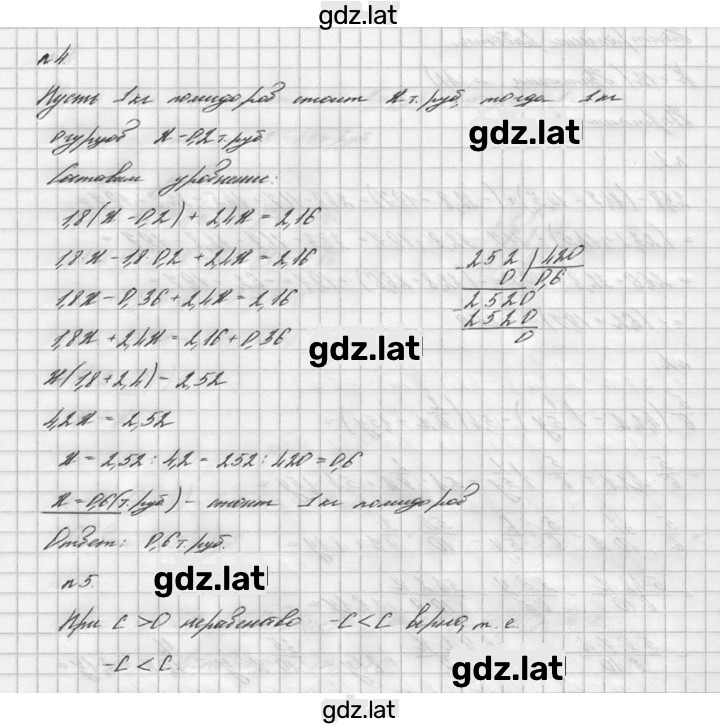 gdz.lat
n 4.
Пусть 1 кг помидоров стоит х т. руб, тогда 1 кг
огурцов х - 0,2 т. руб.
gdz.lat
Составим уравнение:
1,8(х - 0,2) + 2,4х = 2,16
1,8·х - 1,8·0,2 + 2,4х = 2,16
1,8х - 0,36 + 2,4х = 2,16
1,8х + 2,4х = 2,16 + 0,36
х(1,8 + 2,4) = 2,52
4,2х = 2,52
х = 2,52 : 4,2 = 252 : 420 = 0,6
х = 0,6 (т. руб) - стоит 1 кг помидоров
Ответ: 0,6 т. руб.
- 252 | 420
0 | 0,6
- 2520
2520
0
gdz.lat
n 5.
gdz.lat
При С > 0 неравенство -С < С верно, т. е.
-С < С.
gdz.lat
gdz.lat